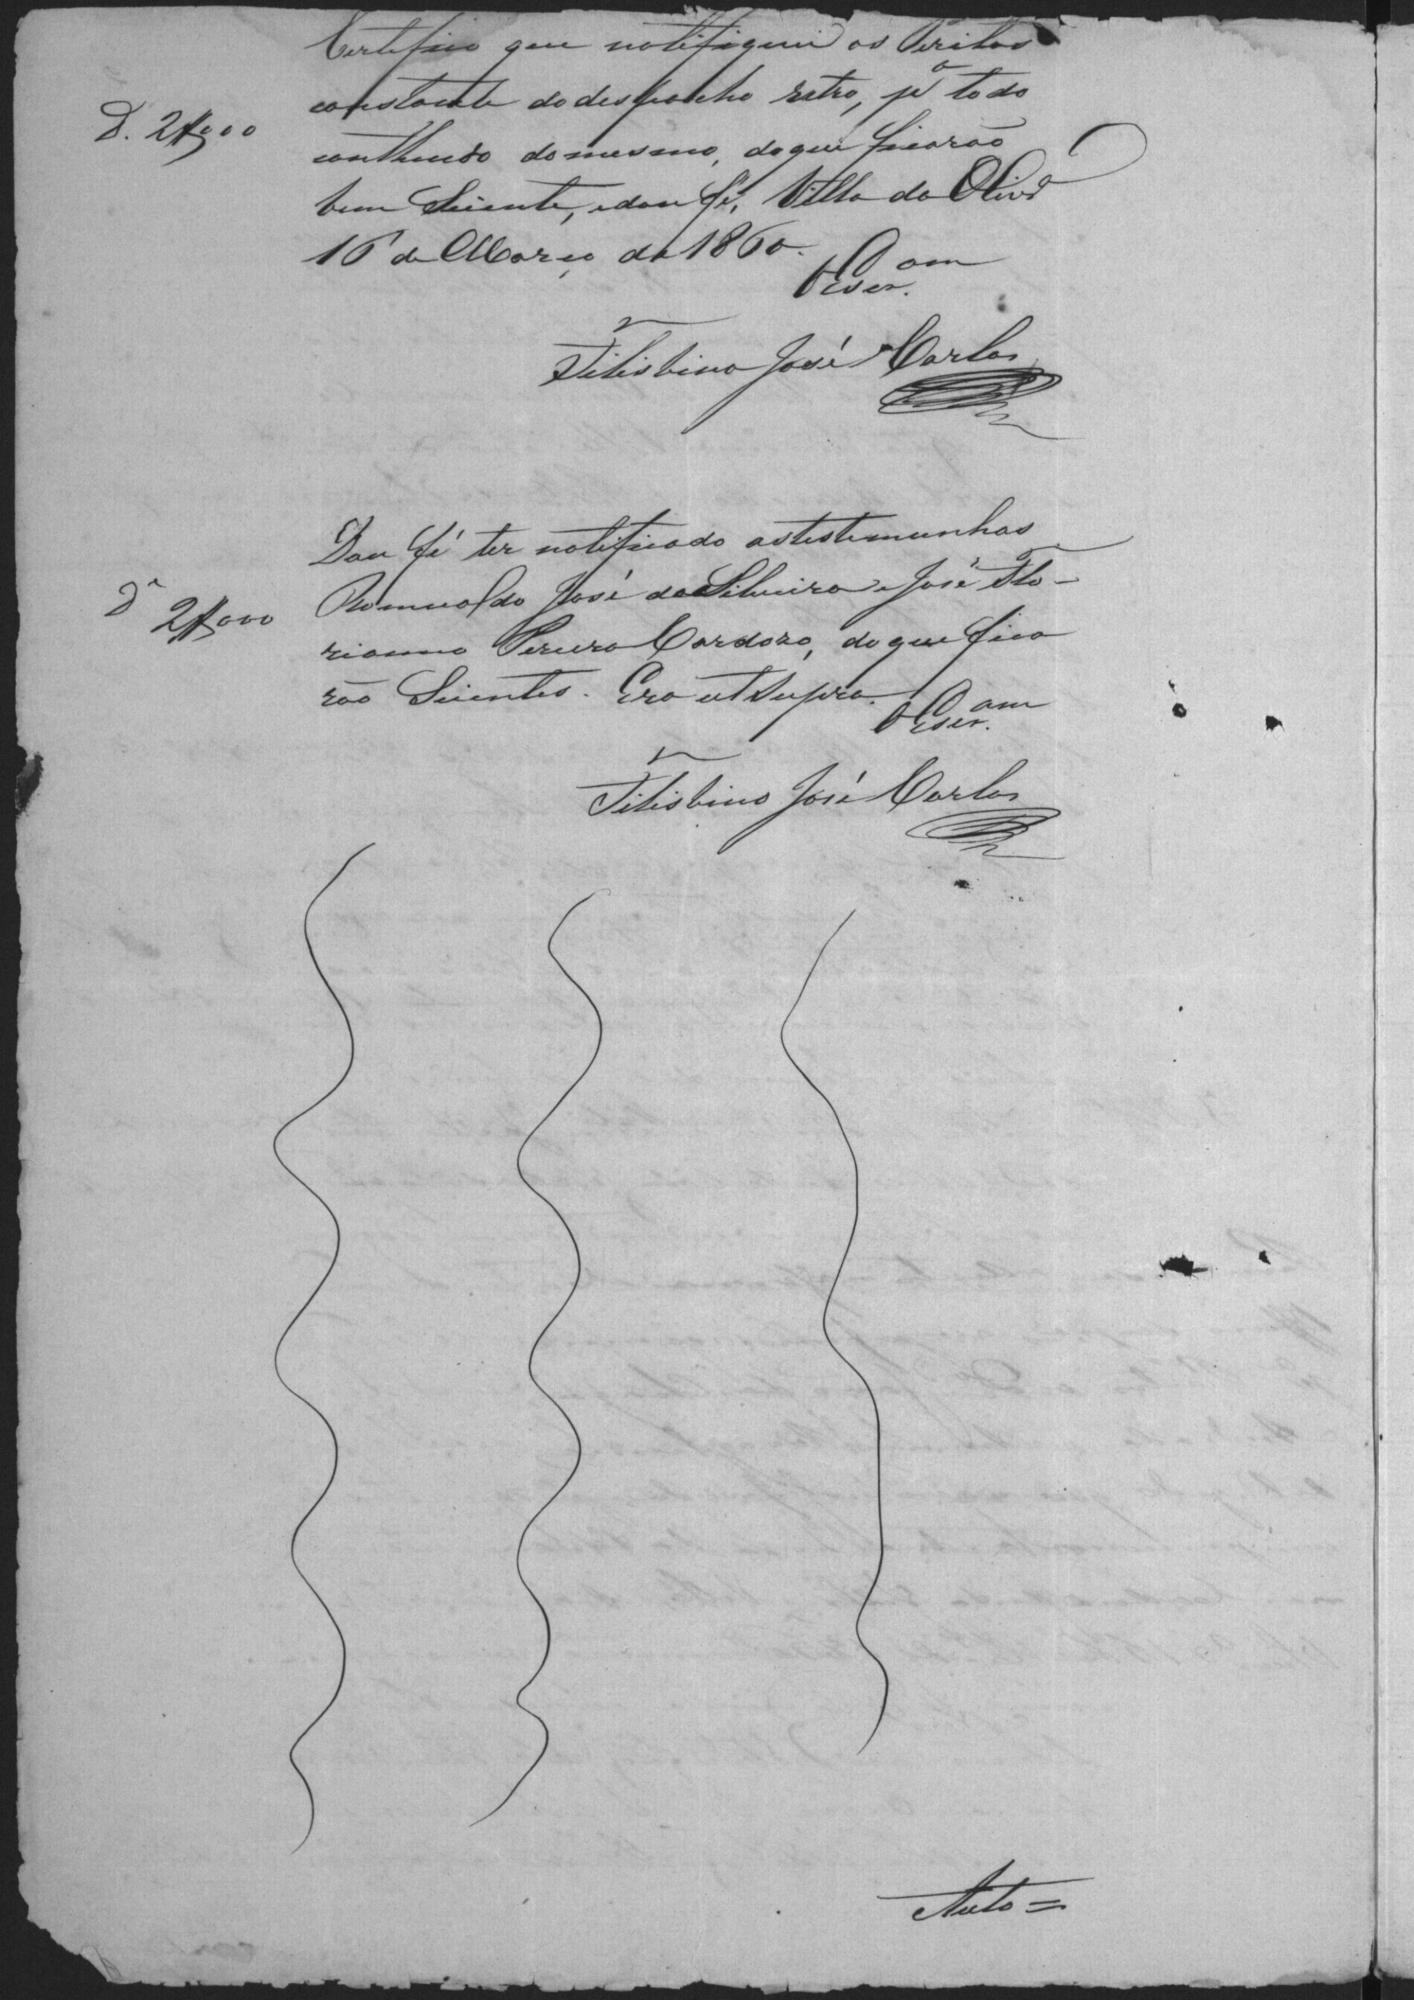 Certifico que notifiquei os Peritos
constante do despacho retro, pr todo
D. 2$000
contheudo do mesmo, do que ficarão
bem Sciente, e dou fé, Villa da Olivra
16 de Março de 1860.
O Escr.am
Felisbino José Carlos
Dou fé ter notificado as testemunhas
Da 2$000
Romualdo José da Silveira e José Flo-
rianno Pereira Cardozo, do que fica
rão Scientes. Era ut Supra.
O Escr.am
Felisbino José Carlos
Auto =